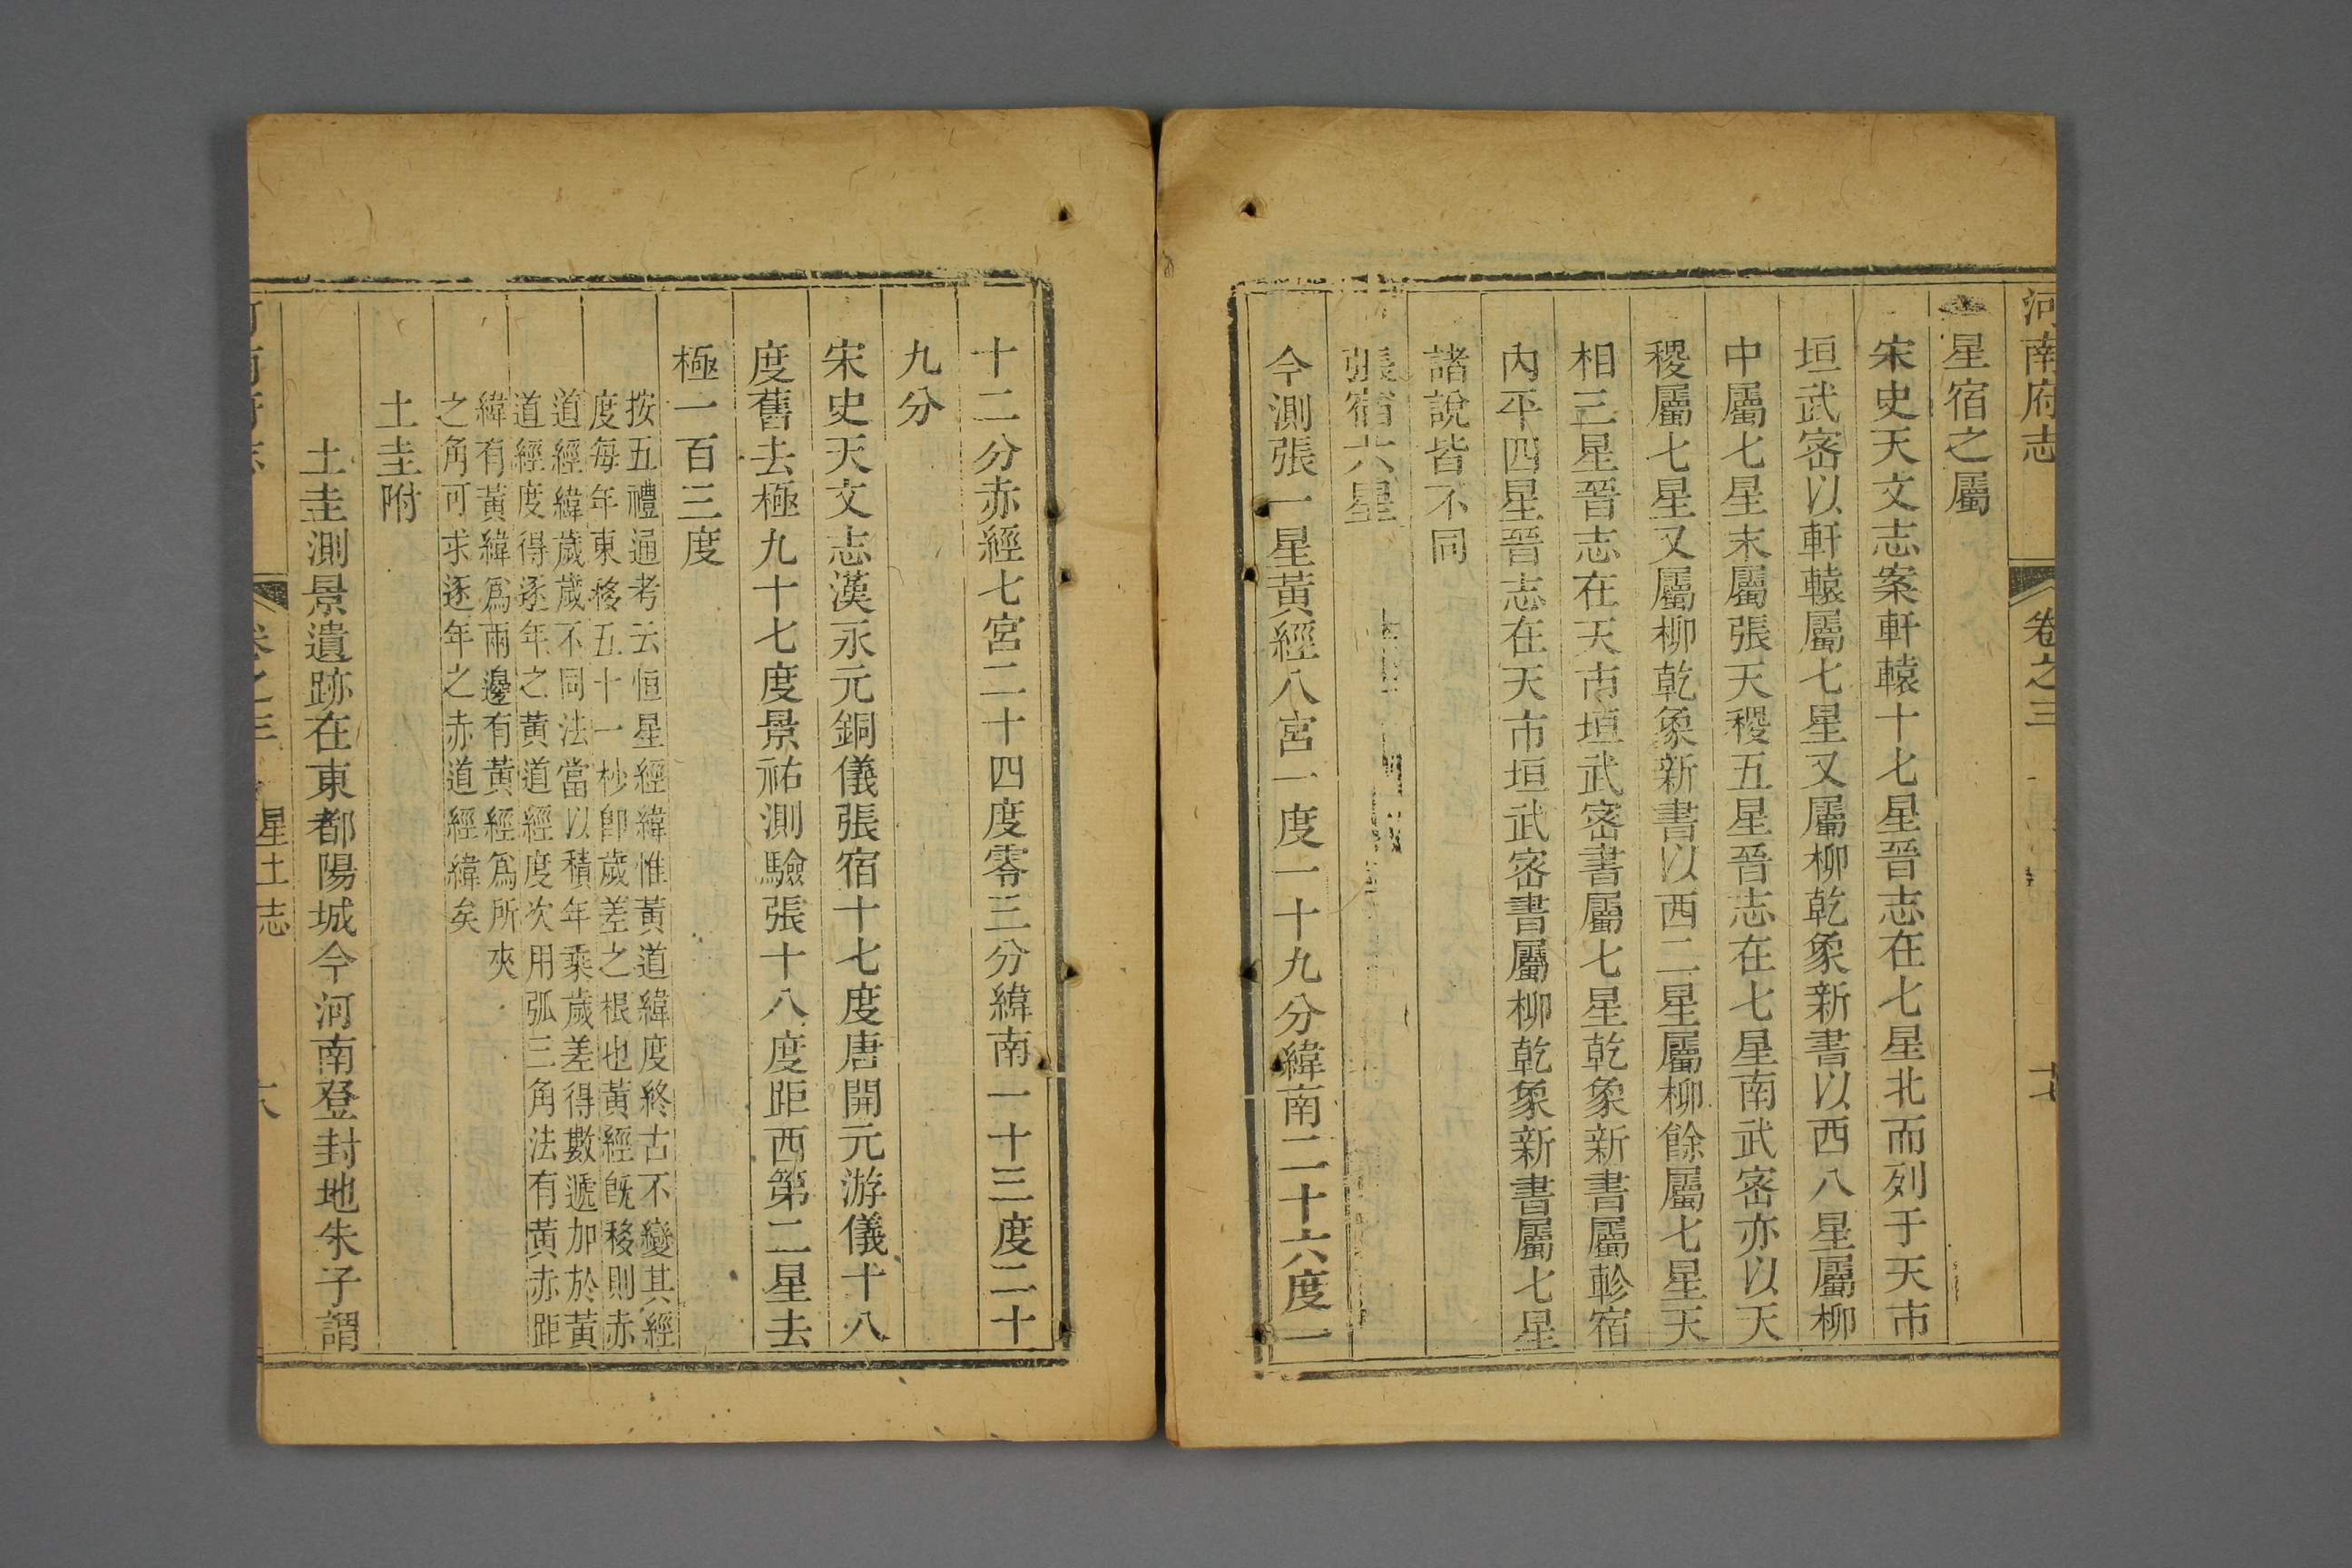 河南府志 卷之三 十七
星宿之屬
宋史天文志案軒轅十七星晉志在七星北而列于天市
垣武宻以軒轅屬七星又屬柳乾象新書以西八星屬柳
中屬七星末屬張天稷五星晉志在七星南武宻亦以天
稷屬七星又屬柳乾象新書以西二星屬柳餘屬七星天
相三星晉志在天市垣武宻書屬七星乾象新書屬軫宿
內平四星晉志在天市垣武宻書屬柳乾象新書屬七星
諸說皆不同
張宿六星
今測張一星黃經八宮一度一十九分緯南二十六度一
十二分赤經七宮二十四度零三分緯南一十三度二十
九分
宋史天文志漢永元銅儀張宿十七度唐開元游儀十八
度舊去極九十七度景祐測驗張十八度距西第二星去
極一百三度
按五禮通考云恒星經緯惟黃道緯度終古不變其經
度每年東移五十一杪卽歲差之根也黃經旣移則赤
道經緯歲歲不同法當以積年乘歲差得數遞加於黃
道經度得逐年之黃道經度次用弧三角法有黃赤距
緯有黃緯爲兩邊有黃經爲所夾
之角可求逐年之赤道經緯矣
土圭附
土圭測景遺跡在東都陽城今河南登封地朱子謂
河南府志 卷之三 星土志 六